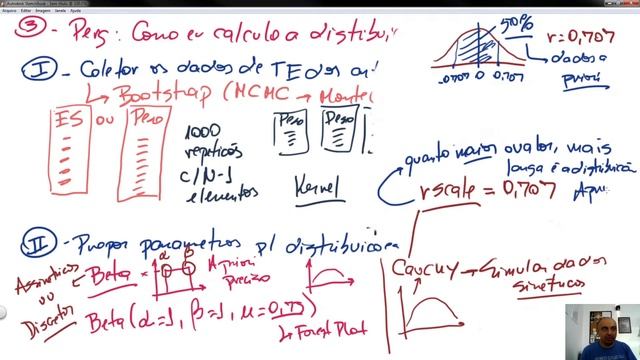 3 - Perg: Como eu calculo a distribui
I - Coletar os dados de TE dos
↳ Bootstrap (MCMC → Monte
ES ou Peso
1000
repetições
c/ N-1
elementos
Peso Peso
Kernel
50%
r = 0,707
-0707 0 0,707
dados a
priori
quanto maior o valor, mais
longa é a distribuição
rscale = 0,707
II - Propor parametros p/ distribuição
α β
Assimetricos
ou
Discretos
Beta
A priori
Preciso
Beta (α=1, β=1, μ=0,73)
↳ Forest Plot
Cauchy → Simular dados
sinéticos